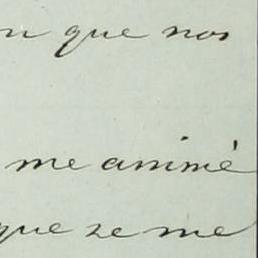 n que nos
me animé
que se me